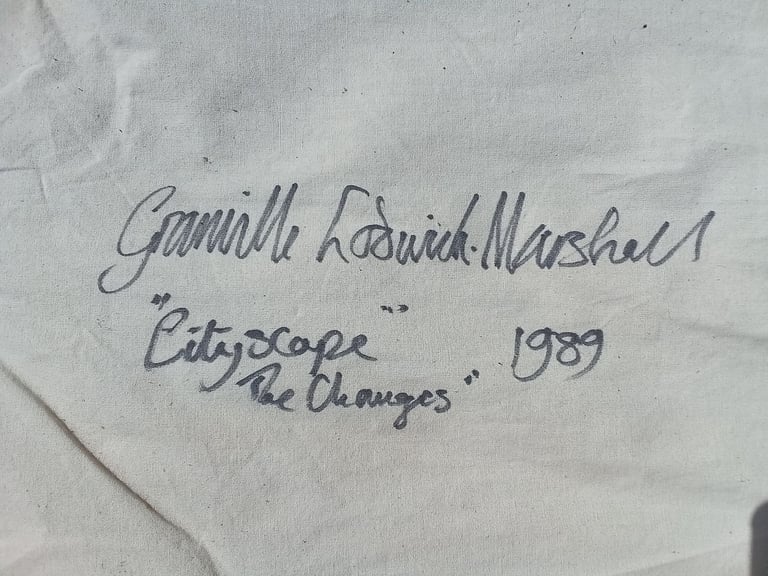 Granville Lodwick-Marshall
"Cityscape" 1989
The Changes"